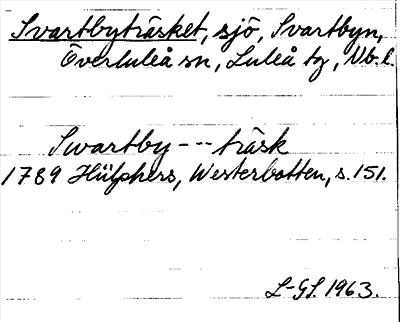 Svartbyträsket, sjö, Svartbyn,
Överluleå sn, Luleå tg, Vb. l.
Swartby --- träsk
1789 Hülphers, Westerbotten, s. 151.
L-GL. 1963.